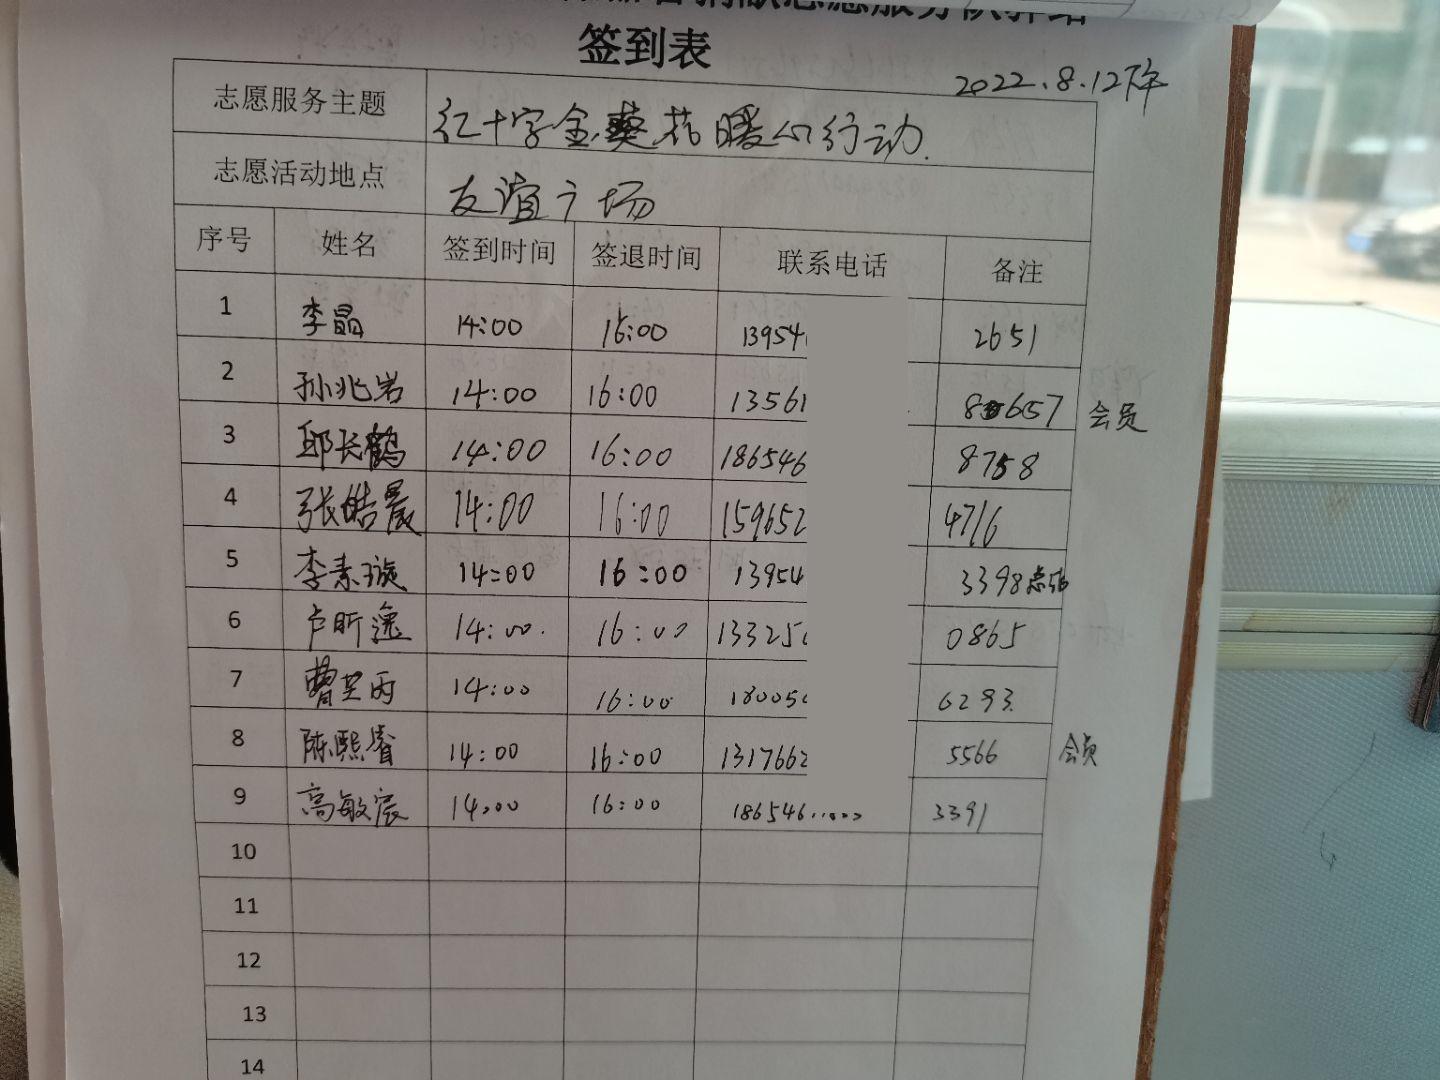 签到表
2022.8.12下午
志愿服务主题 红十字金葵花暖心行动.
志愿活动地点 友谊广场
序号 姓名 签到时间 签退时间 联系电话 备注
1 李晶 14:00 16:00 13954 2651
2 孙兆岩 14:00 16:00 13561 8657 会员
3 邱长鹤 14:00 16:00 186546 8758
4 张皓晨 14:00 16:00 159652 4716
5 李素璇 14:00 16:00 13954 3398
6 卢昕逸 14:00. 16:00 13325 0865
7 曹 14:00 16:00 18005 6293.
8 陈熙睿 14:00 16:00 1317662 5566 会员
9 高敏宸 14:00 16:00 186546...... 3391
10
11
12
13
14